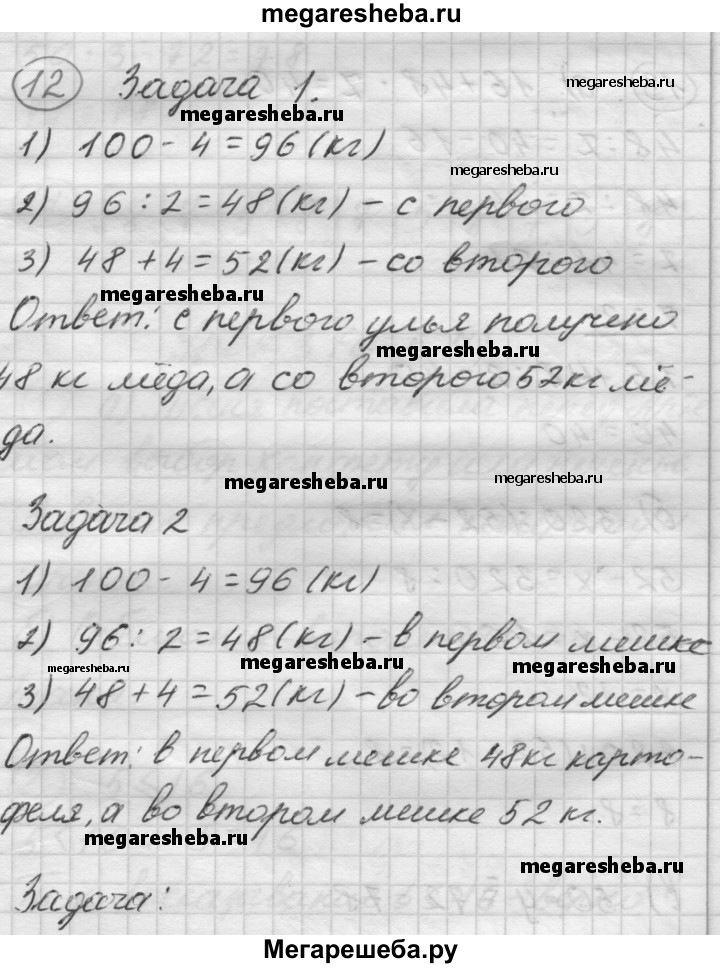 megaresheba.ru
12 Задача 1.
megaresheba.ru
megaresheba.ru
1) 100 - 4 = 96 (кг)
megaresheba.ru
2) 96 : 2 = 48 (кг) - с первого
3) 48 + 4 = 52 (кг) - со второго
megaresheba.ru
Ответ: с первого улья получено
megaresheba.ru
48 кг мёда, а со второго 52 кг мё-
да.
megaresheba.ru
megaresheba.ru
Задача 2
1) 100 - 4 = 96 (кг)
megaresheba.ru
2) 96 : 2 = 48 (кг) - в первом мешке
megaresheba.ru
megaresheba.ru
megaresheba.ru
3) 48 + 4 = 52 (кг) - во втором мешке
Ответ: в первом мешке 48 кг карто-
феля, а во втором мешке 52 кг.
megaresheba.ru
megaresheba.ru
Задача:
Мегарешеба.ру